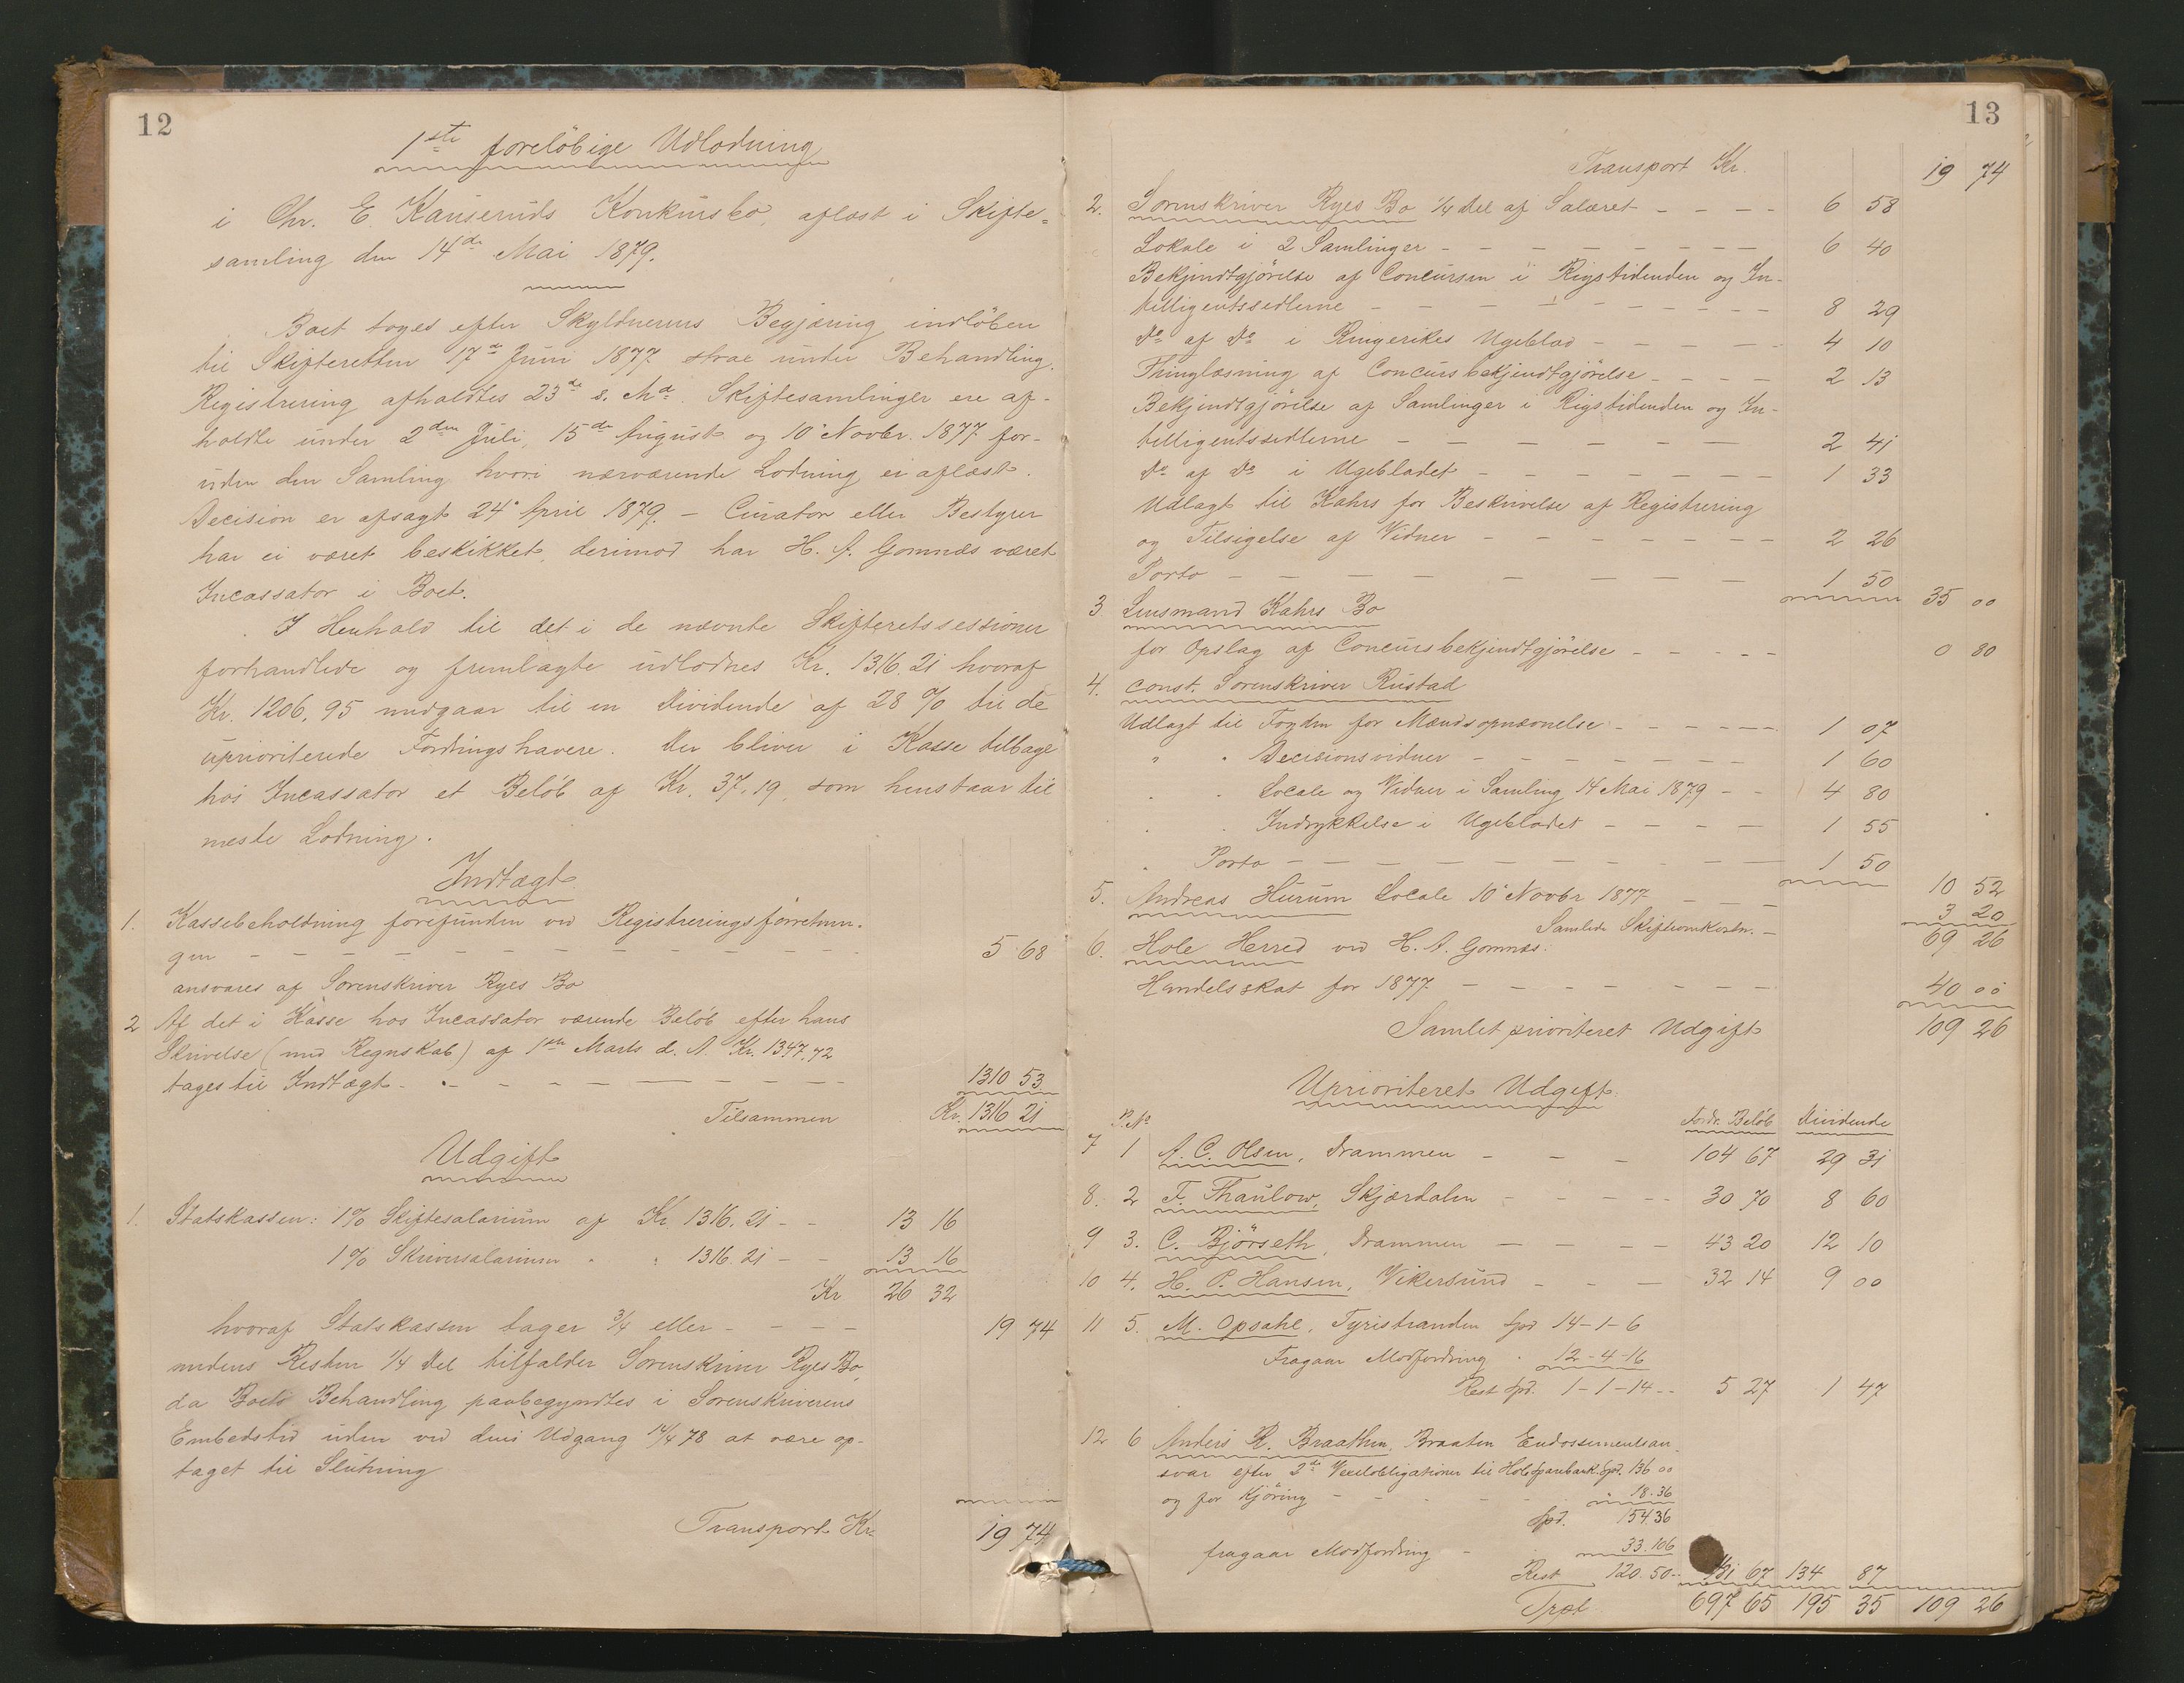 12
1ste foreløbige Udlodning
i Chr. E. Kauseruds Konkursbo, aflæst i Skifte-
samling den 14de Mai 1879.
Boet toges efter Skyldnerens Begjæring indløben
til Skifteretten 17de Juni 1877 strax under Behandling.
Registrering afholdtes 23de s. Md. Skiftesamlinger ere af-
holdte under 2den Juli, 15de August og 10de Novbr. 1877 for-
uden den Samling hvori nærværende Lodning er aflæst.
Decision er afsagt 24de April 1879. - Curator eller Bestyrer
har ei været beskikket, derimod har H. A. Gomnæs været
Incassator i Boet.
I Henhold til det i de nævnte Skifteretssessioner
forhandlede og fremlagte udlodnes Kr. 1316.21 hvoraf
Kr. 1206,95 medgaar til en Dividende af 28 % til de
uprioriterede Fordringshavere. Der bliver i Kasse tilbage
hos Incassator et Beløb af Kr. 37,19, som henstaar til
næste Lodning.
Indtægt
1. Kassebeholdning forefunden ved Registreringsforretnin-
gen - - - - 5 68
ansvares af Sorenskriver Ryes Bo
2 Af det i Kasse hos Incassator værende Beløb efter hans
Skrivelse (med Regnskab) af 1ste Marts d. A. Kr. 1347,72
tages til Indtægt - - - - 1310 53
Tilsammen Kr. 1316 21
Udgift
1. Statskassen: 1% Skiftesalarium af Kr. 1316.21 - - 13 16
1% Skriversalarium " " 1316.21 - - 13 16
Kr 26 32
hvoraf Statskassen tager 3/4 eller - - - - 19 74
medens Resten 1/4 Del tilfalder Sorenskriver Ryes Bo,
da Boets Behandling paabegyndtes i Sorenskriverens
Embedstid uden ved dens Udgang 14/4 78 at være op-
taget til Slutning
Transport Kr. 19 74
13
Transport Kr. 19 74
2. Sorenskriver Ryes Bo 1/4 Del af Salæret - - - - 6 58
Lokale i 2 Samlinger - - - - 6 40
Bekjendtgjørelse af Concursen i Rigstidenden og In-
telligentssedlerne - - - - 8 29
Do af Do i Ringerikes Ugeblad - - - - 4 10
Thinglæsning af Concursbekjendtgjørelse - - - - 2 13
Bekjendtgjørelse af Samlinger i Rigstidenden og In-
telligentssedlerne - - - - 2 41
Do af Do i Ugebladet - - - - 1 33
Udlagt til Kahrs for Beskrivelse af Registrering
og Tilsigelse af Vidner - - - - 2 26
Porto - - - - 1 50 35 00
3. Lensmand Kahrs Bo
for Opslag af Concursbekjendtgjørelse - - - - 0 80
4. const. Sorenskriver Rustad
Udlagt til Fogden for Mændsopnævnelse - - - - 1 07
" " Decisionsvidner - - - - 1 60
" " Locale og Vidner i Samling 14 Mai 1879 - - 4 80
" " Indrykkelse i Ugebladet - - - - 1 55
" Porto - - - - 1 50 10 52
5. Andreas Hurum Locale 10de Novbr 1877 - - - 3 20
Samlede Skifteomkostn. - 69 26
6. Hole Herred ved H. A. Gomnæs:
Handelsskat for 1877 - - - - 40 00
Samlet prioriteret Udgift 109 26
Uprioriteret Udgift
P. No Fordr. Beløb Dividende
7 1 A. C. Olsen, Drammen - - - 104 67 29 31
8. 2 F. Thaulow, Skjærdalen - - - - 30 70 8 60
9 3. C. Bjørseth, Drammen - - - - 43 20 12 10
10 4. H. P. Hansen, Vikersund - - - 32 14 9 00
11 5. M. Opsahl, Tyristranden Spd 14-1-6
Fragaar Modfordring " 12-4-16
Rest Spd. 1-1-14 - - 5 27 1 47
12 6 Anders R. Braathen, Braaten Endossementsan-
svar efter 2de Vexelobligationer til Hole Sparebank Spd. 136 00
og for Kjøring - - - - " 18.36
Spd. 154.36
fragaar Modfordring - 33.106
Rest 120.50 - 67 134 87
Trpt 697 65 195 35 109 26